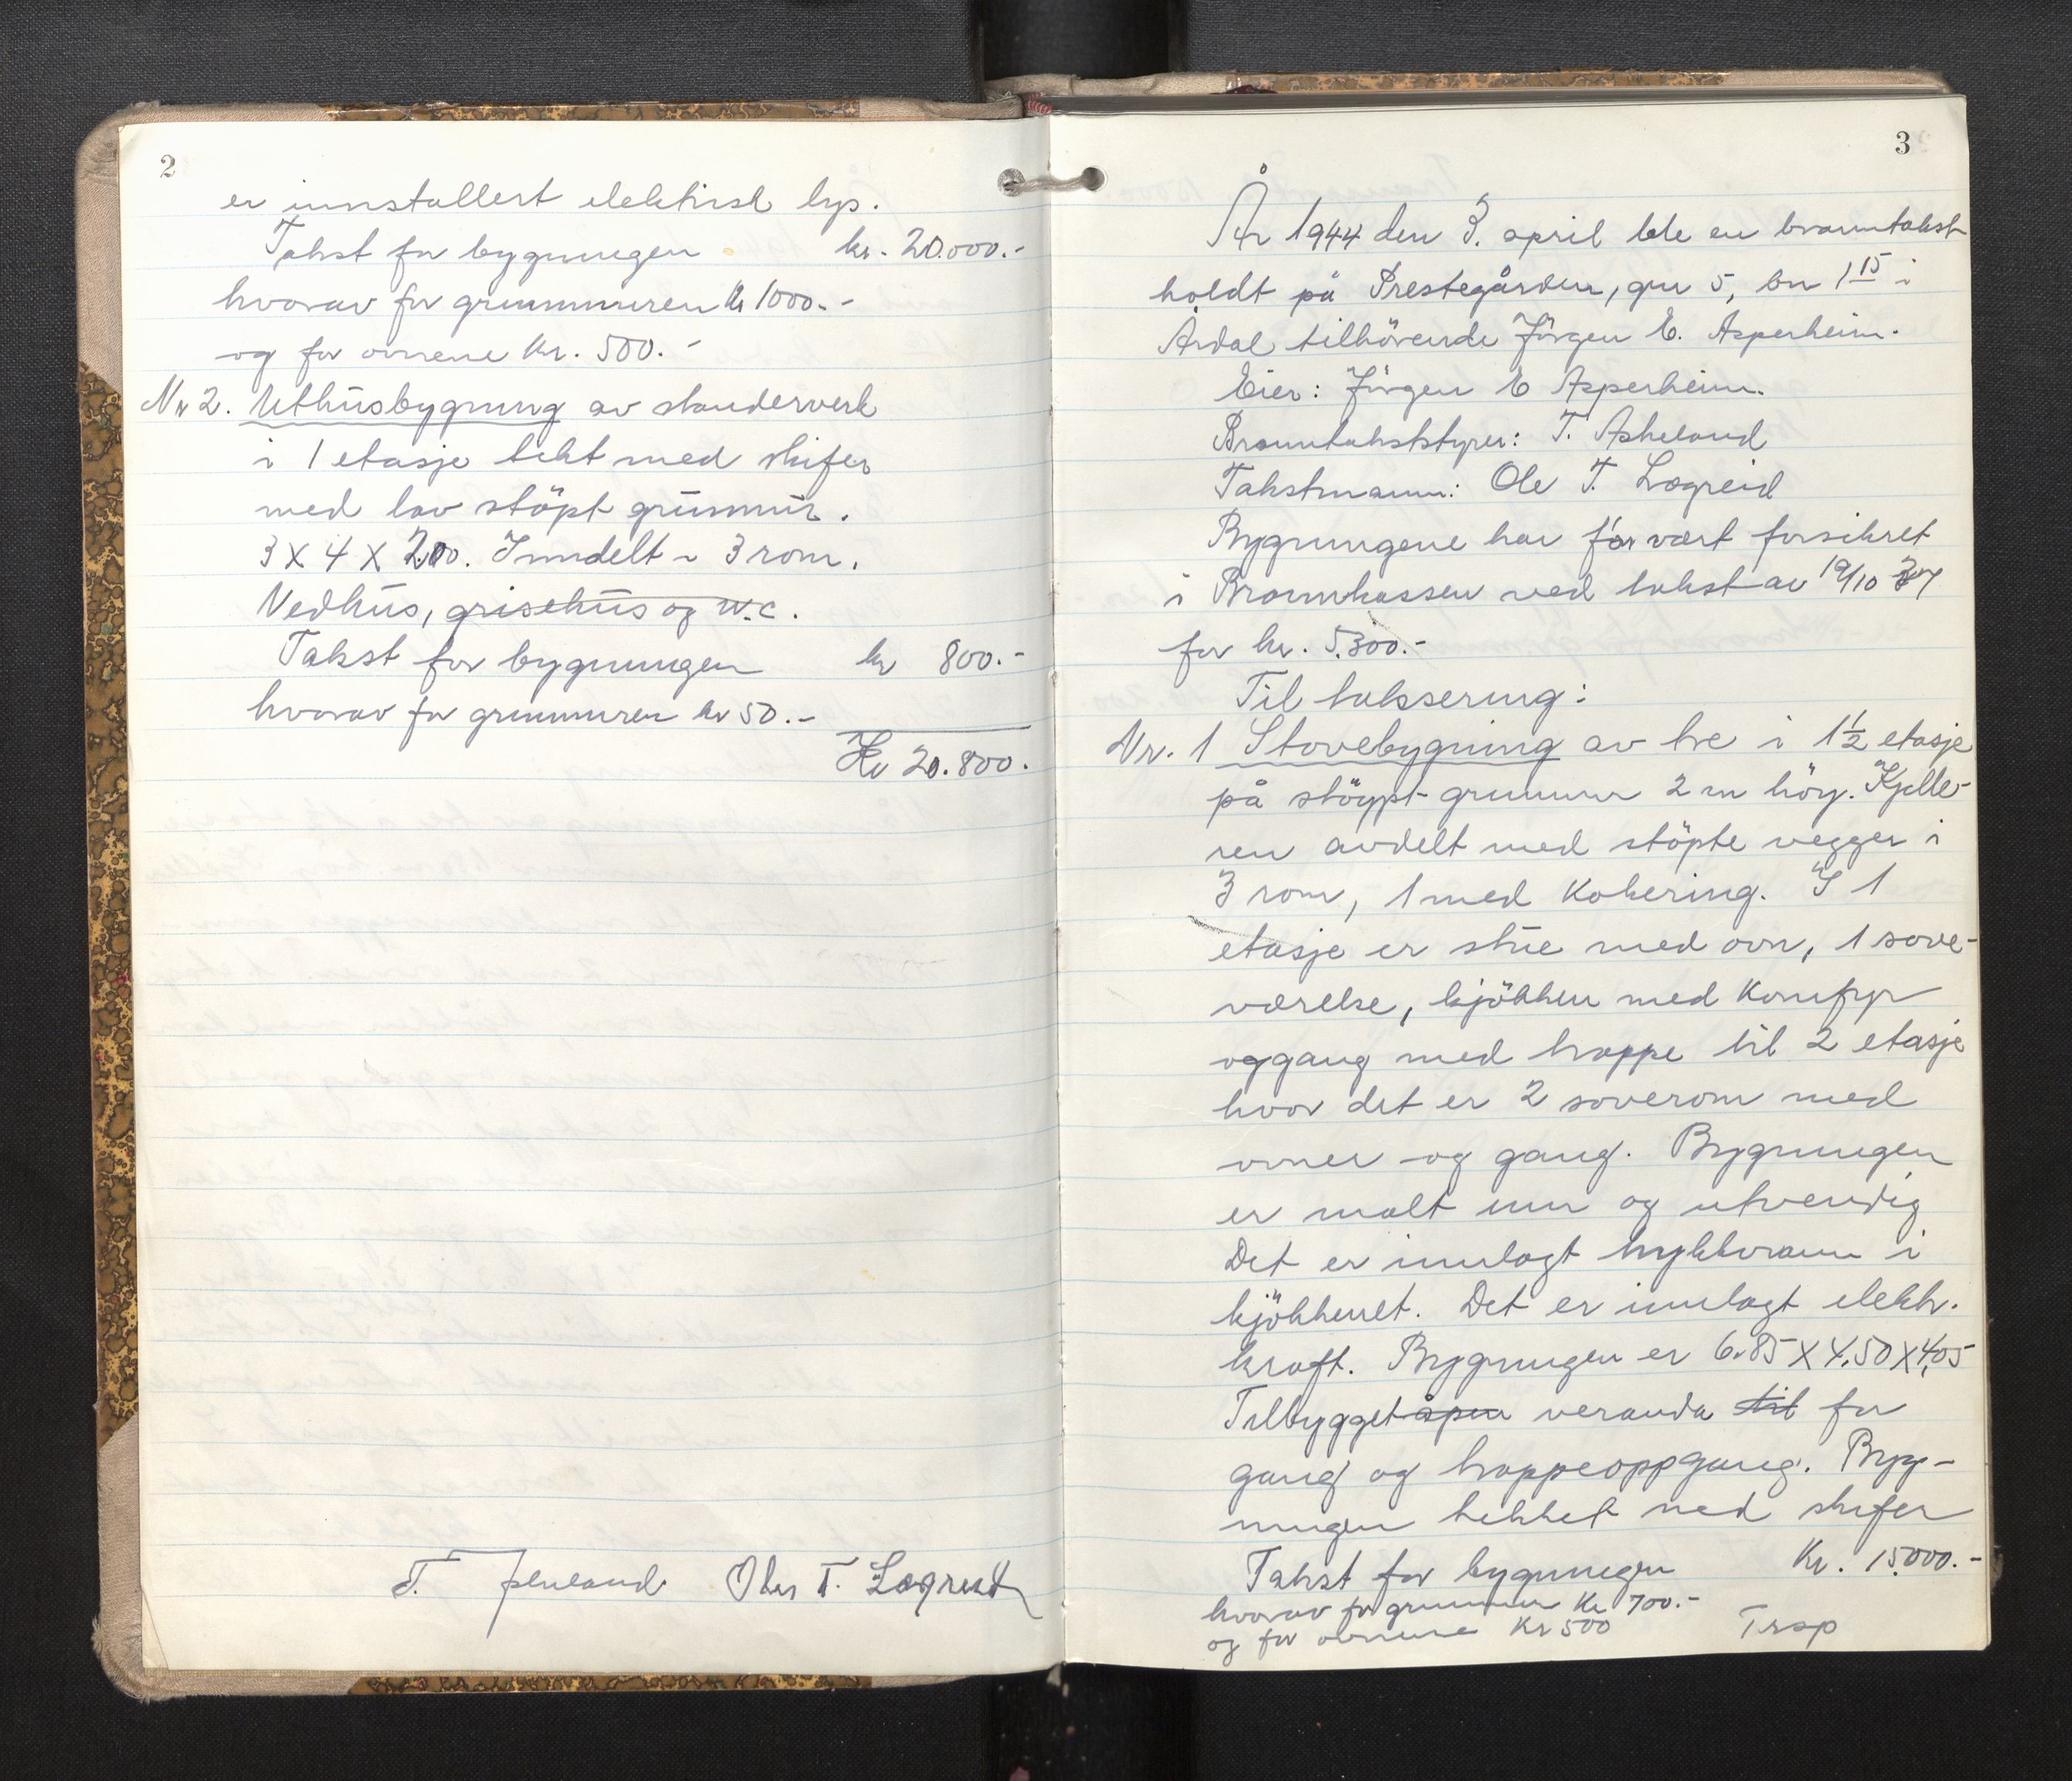 2
er innstallert elektrisk lys.
Takst for bygningen kr. 20.000.-
hvorav for grunnmuren kr 1000.-
og for ovnene kr. 500.-
Nr 2. Uthusbygning av standerverk
i 1 etasje tekt med skifer
med lav stöpt grunmur.
3 X 4 X 2.00. Inndelt i 3 rom.
Vedhus, grisehus og w.c.
Takst for bygningen kr 800.-
hvorav for grunnmuren kr 50.-
Kr 20.800.
T. Ole T. Lægreid
3
År 1944 den 3. april ble en branntakst
holdt på Prestegården, gnr 5, bn 1 15 i
Årdal tilhörende Jörgen E. Asperheim.
Eier: Jörgen E Asperheim.
Branntakststyrer: T. Askeland
Takstmann: Ole T. Lægreid
Bygningene har før vært forsikret
i Brannkassen ved takst av 19/10
for kr. 5.300.-
Til taksering:
Nr. 1 Stovebygning av tre i 1½ etasje
på stöypt grunnmur 2 m höy. Kjelle-
ren avdelt med stöpte vegger i
3 rom, 1 med kokering. I 1
etasje er stue med ovn, 1 sove-
værelse, kjökken med komfyr
og gang med trappe til 2 etasje
hvor det er 2 soverom med
ovner og gang. Bygningen
er malt inn og utvendig
Det er innlagt trykkvann i
kjökkenet. Det er innlagt elektr.
kraft. Bygningen er 6.85 X 4.50 X 4,05
Tilbygget åpen veranda til for
gang og trappeoppgang. Byg-
ningen tekket med skifer
Takst for bygningen Kr. 15.000.-
hvorav for grunnmur Kr 700.-
og for ovnene Kr 500 Trsp